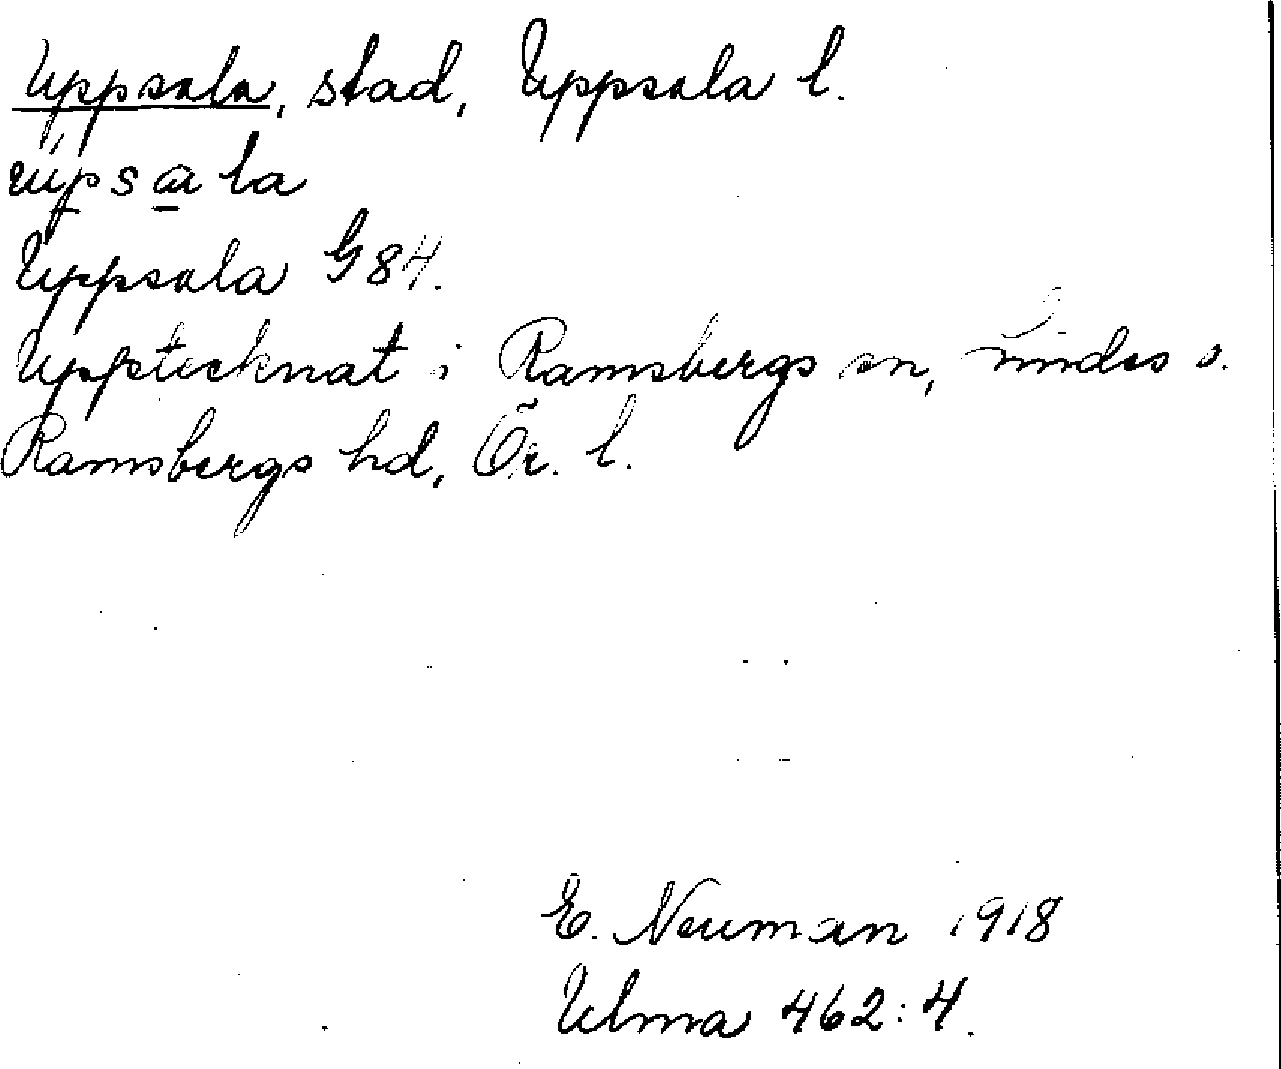 Uppsala, stad, Uppsala l.
Uppsala G 84.
Upptecknat i Ramsbergs sn, Lindes o.
Ramsbergs hd, Ör. l.
E. Neuman 1918
Ulma 462:4.